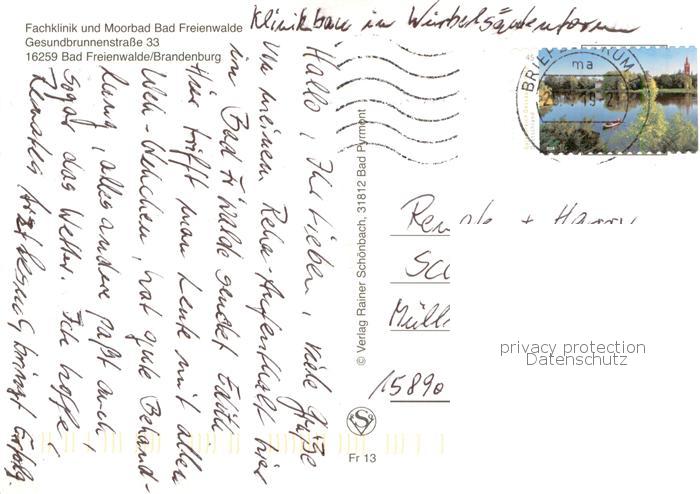 Fachklinik und Moorbad Bad Freienwalde
Gesundbrunnenstraße 33
16259 Bad Freienwalde/Brandenburg
Klinikbau in Wirbelsäulenform
Hallo, Ihr Lieben, viele Grüße
von meinem Reha-Aufenthalt hier
in Bad F'walde sendet Edith.
Hier trifft man Leute mit allen
Weh-Wehchen, hat gute Behand-
lung, alles andere paßt auch,
sogar das Wetter. Ich hoffe,
Renates Arztbesuch bringt Erfolg.
© Verlag Rainer Schönbach, 31812 Bad Pyrmont
BRIEFZENTRUM
ma
45
Renate + Harry
Müll
15890
privacy protection
Datenschutz
Fr 13